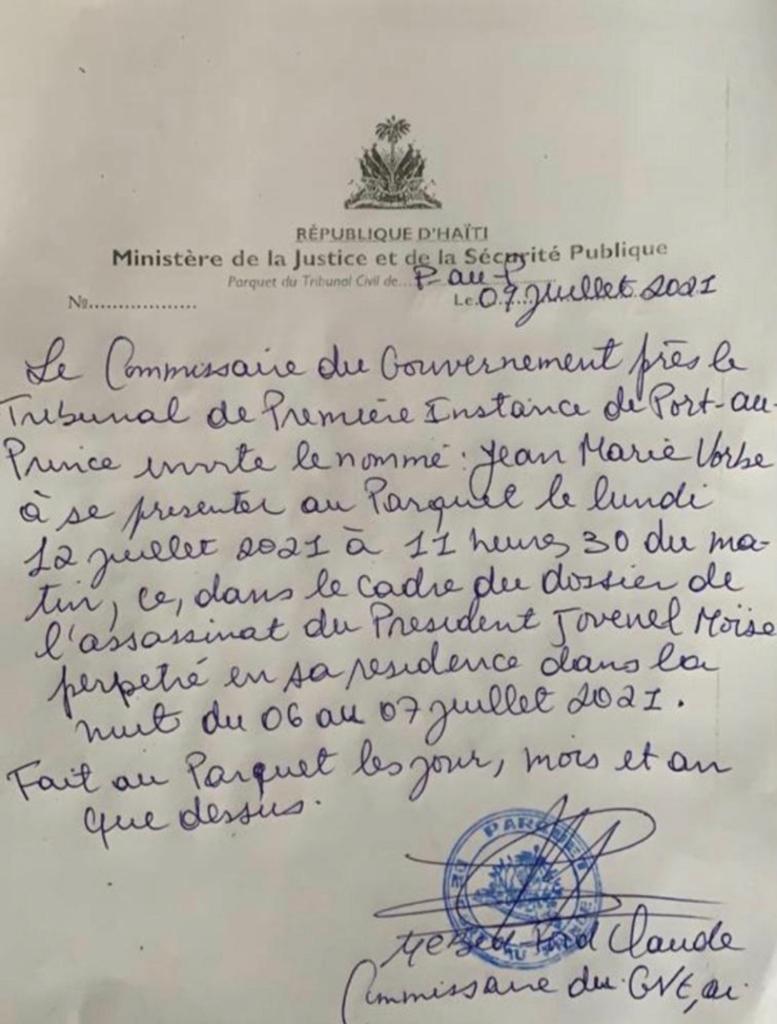 RÉPUBLIQUE D'HAÏTI
Ministère de la Justice et de la Sécurité Publique
Parquet du Tribunal Civil de... P-au-P
No.................. Le 07 juillet 2021
Le Commissaire du Gouvernement près le
Tribunal de Première Instance de Port-au-
Prince invite le nommé : Jean Marie Vorbe
à se presenter au Parquet le lundi
12 juillet 2021 à 11 heures 30 du ma-
tin, ce, dans le cadre du dossier de
l'assassinat du President Jovenel Moïse
perpetré en sa residence dans la
nuit du 06 au 07 juillet 2021.
Fait au Parquet les jour, mois et an
que dessus.
PARQUET
Me Bed-Ford Claude
Commissaire du GVt, ai